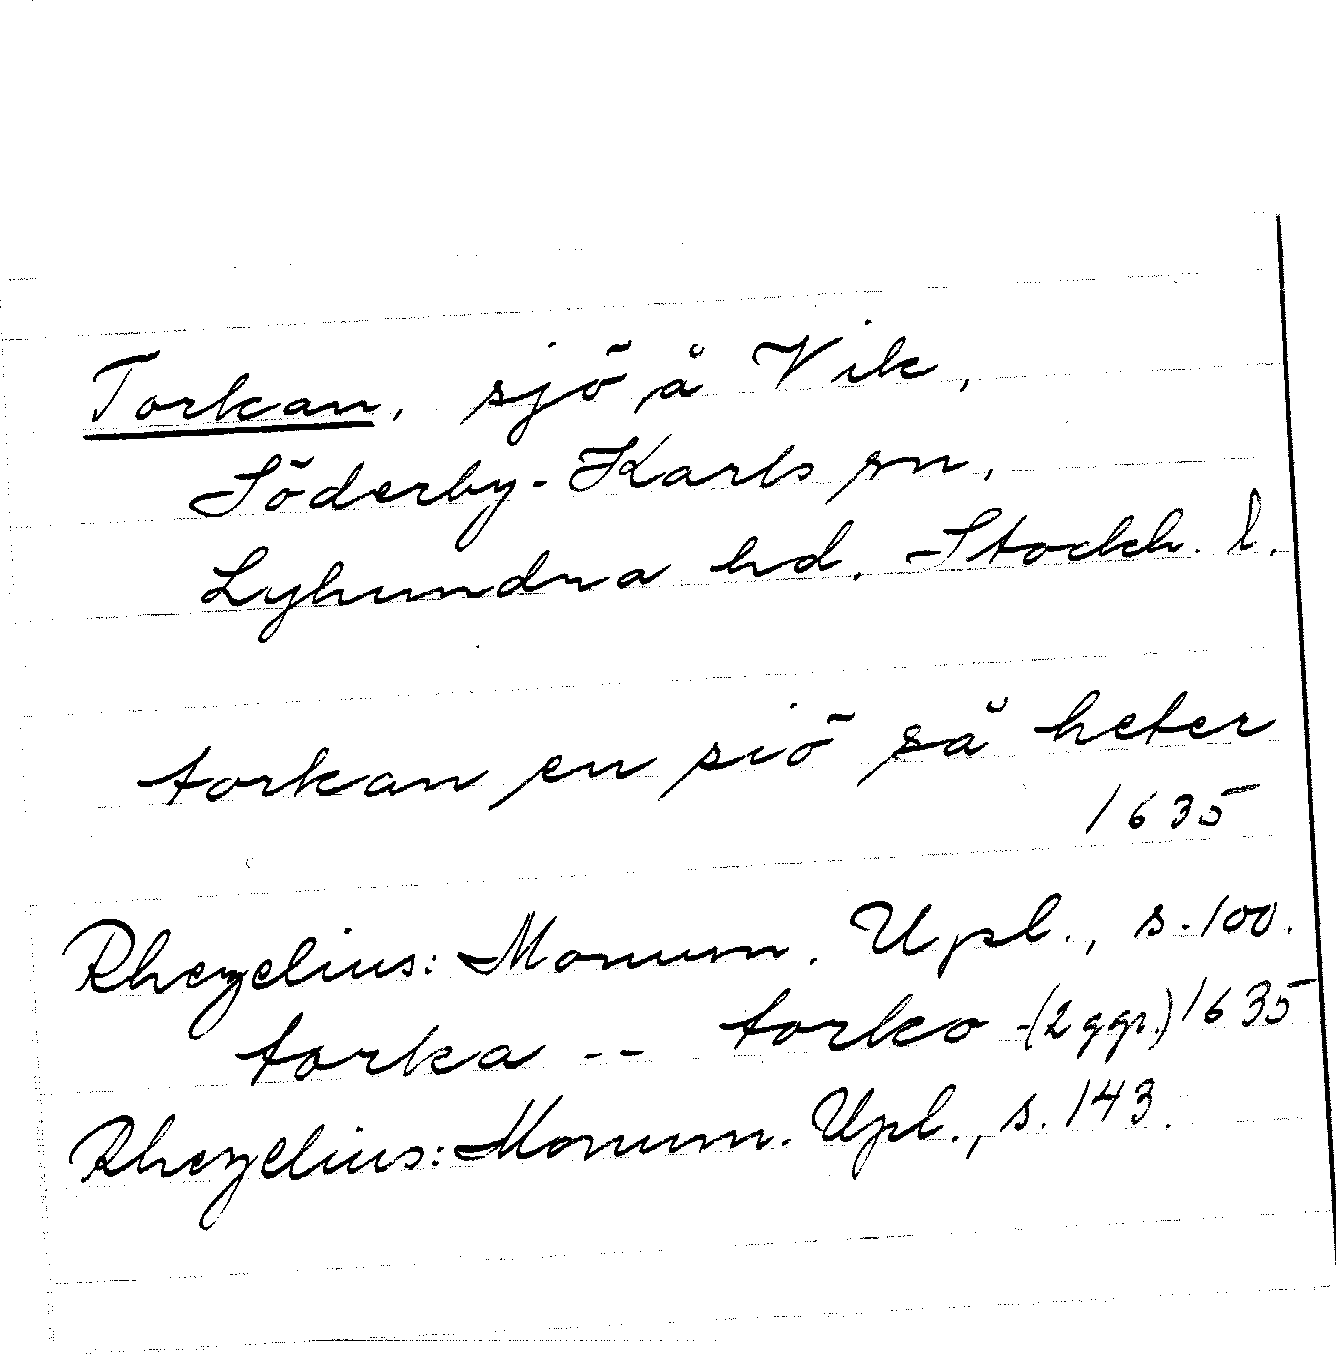 Torkan, sjö å Vik,
Söderby-Karls sn,
Lyhundra hd. Stockh. l.
torkan en siö så heter
1635
Rhezelius: Monum. Upl., s. 100.
torka -- torko (2 ggr.) 1635
Rhezelius: Monum. Upl., s. 143.